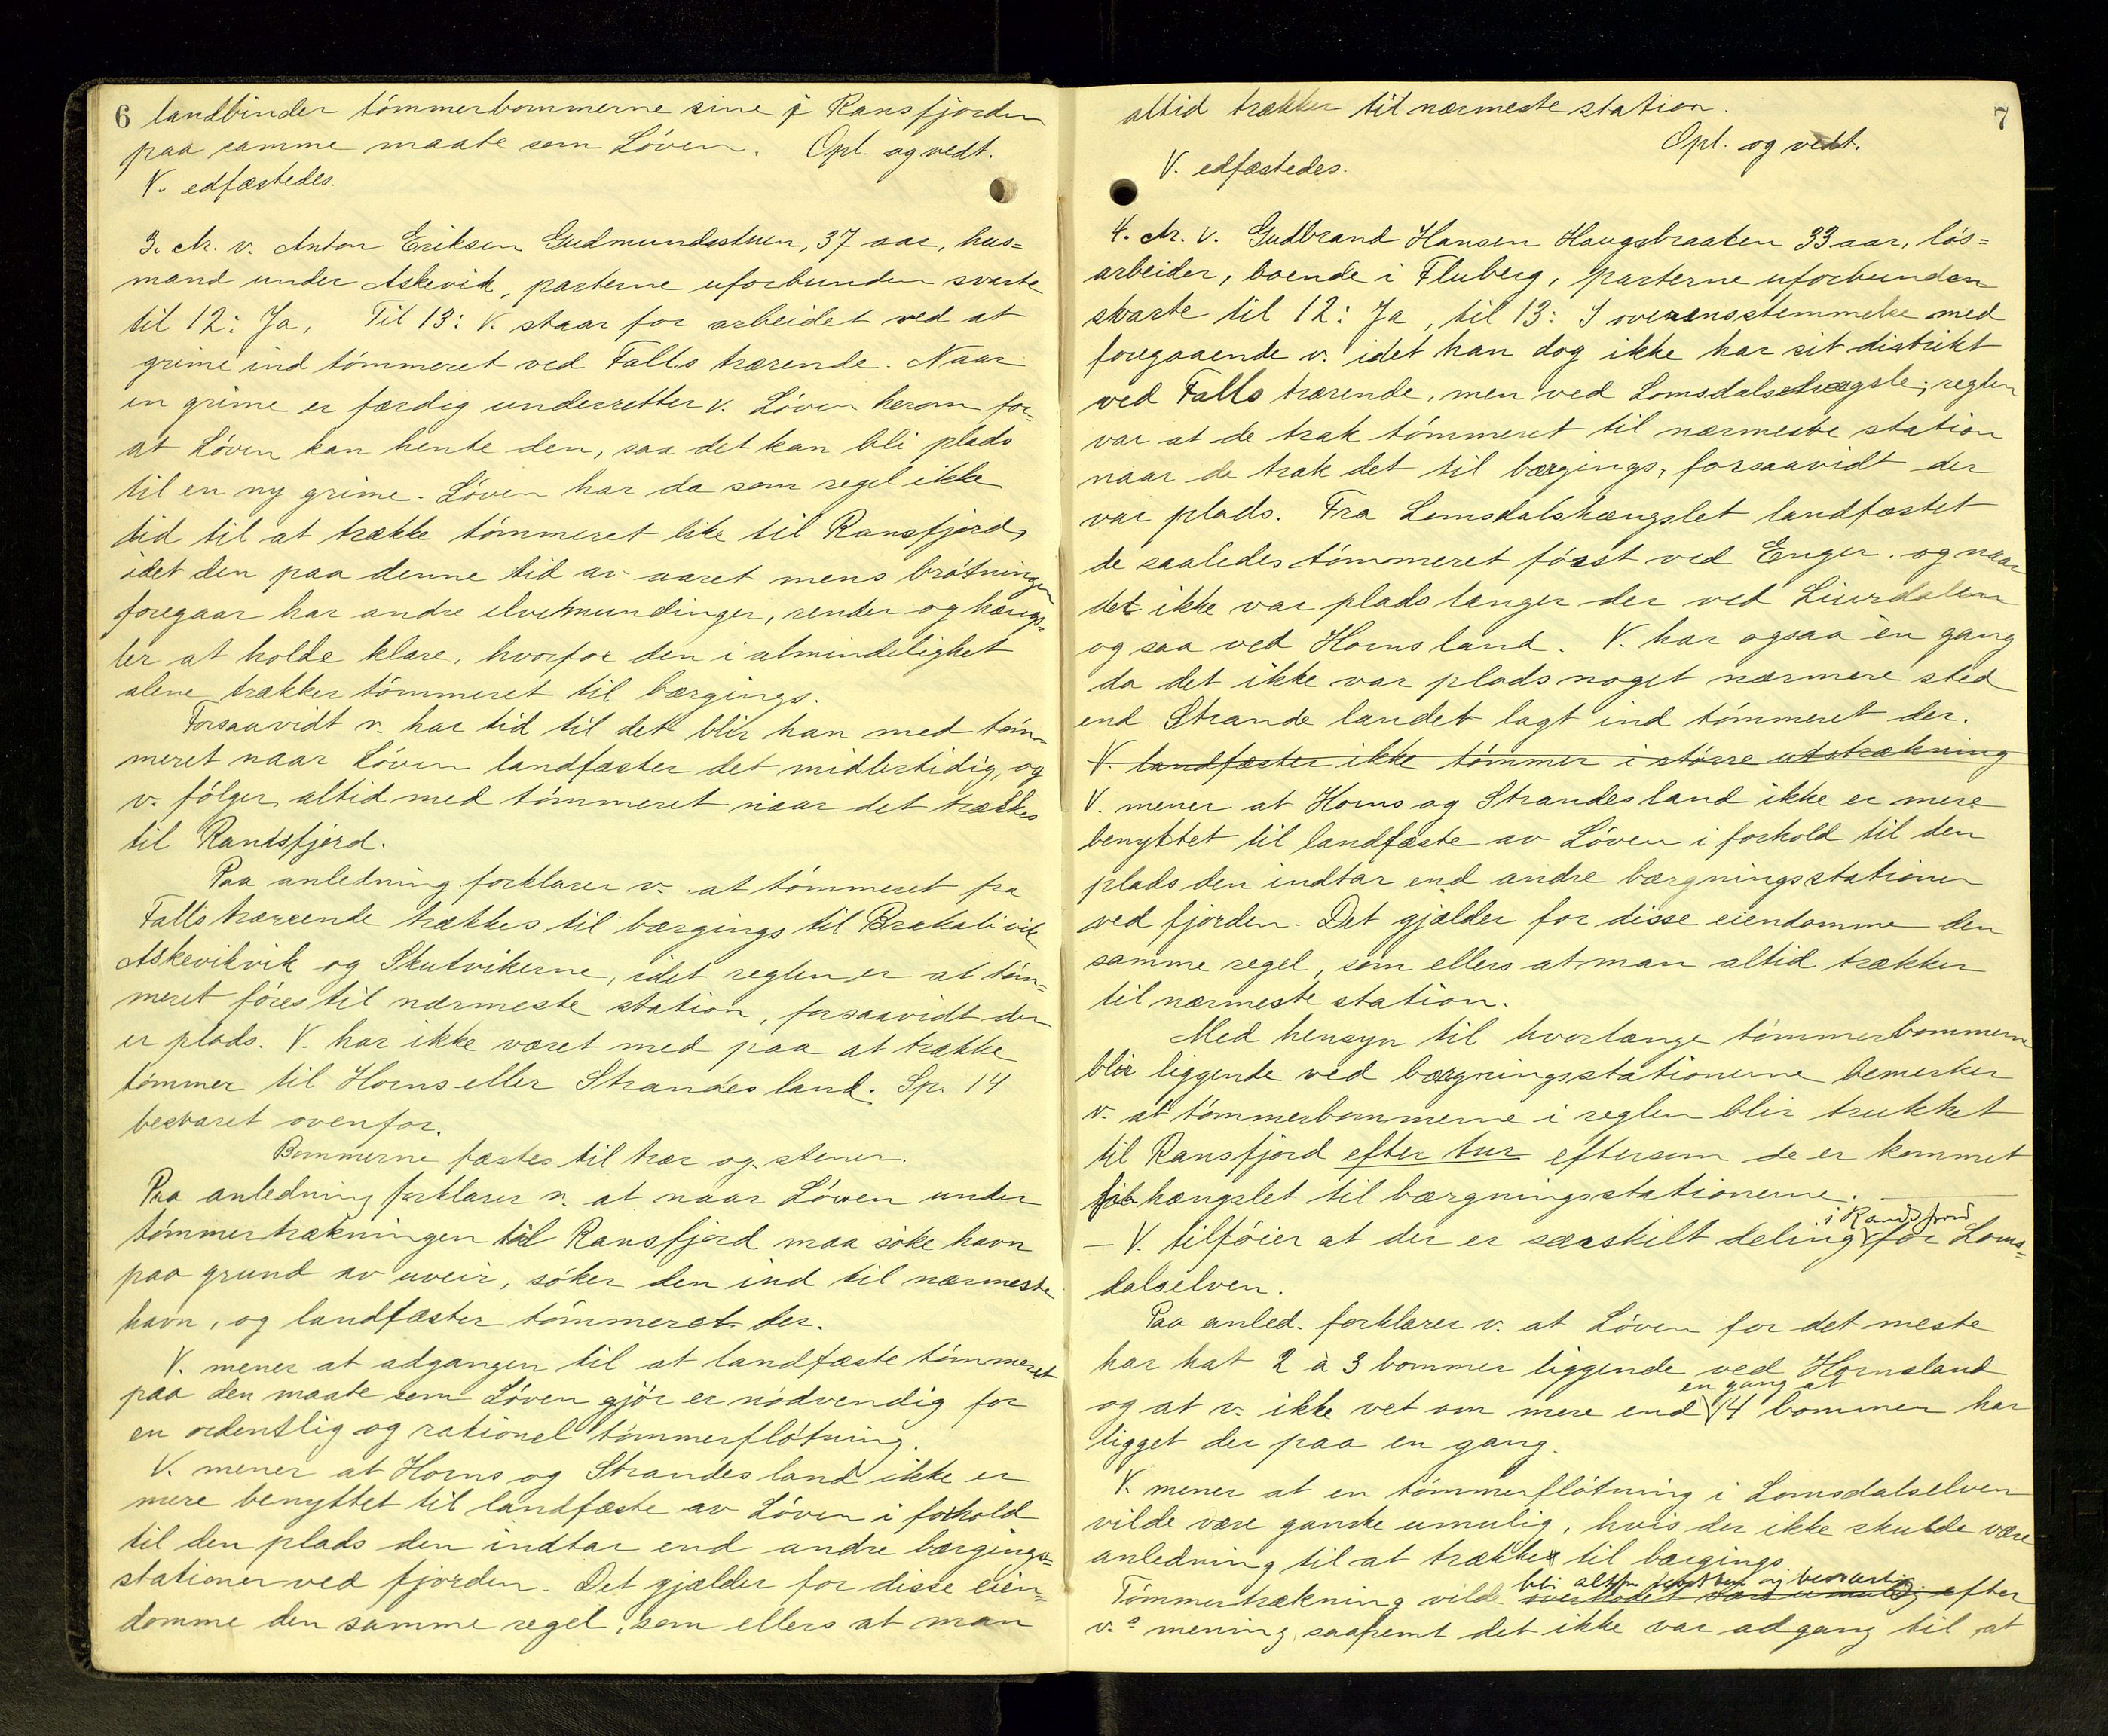 6
landbinder tömmerbommerne sine i Ransfjorden
paa samme maate som Löven. Opl. og vedt.
V. edfæstedes.
3. Ar. v. Anton Eriksen Gudmundsstuen, 37 aar, hus=
mand under Askevik, parterne uforbunden svarte
til 12: Ja. Til 13: V. staar for arbeidet ved at
grime ind tömmeret ved Falls trærende. Naar
en grime er færdig underretter v. Löven herom for=
at Löven kan hente den, saa det kan bli plads
til en ny grime. Löven har da som regel ikke
tid til at trække tömmeret like til Ransfjord,
idet den paa denne tid av aaret mens brötningen
foregaar har andre elvemundinger, render og hængs=
ler at holde klare, hvorfor den i almindelighet
alene trækker tömmeret til bærgings.
Forsaavidt v. har tid til det blir han med töm=
meret naar Löven landfæster det midlertidig, og
v. fölger altid med tömmeret naar det trækkes
til Randsfjord.
Paa anledning forklarer v. at tömmeret fra
Falls trærende trækkes til bærgings til Brakalivik
Askevikvik og Skutvikerne, idet reglen er at töm=
meret föres til nærmeste station, forsaavidt der
er plads. V. har ikke været med paa at trække
tömmer til Horns eller Strandes land. Sp. 14
besvaret ovenfor.
Bommerne fæstes til trær og stener.
Paa anledning forklarer v. at naar Löven under
tömmertrækningen til Ransfjord maa söke havn
paa grund av uveir, söker den ind til nærmeste
havn, og landfæster tömmeret der.
V. mener at adgangen til at landfæste tömmeret
paa den maate som Löven gjör er nödvendig for
en ordentlig og rationel tömmerflötning.
V. mener at Horns og Strandes land ikke er
mere benyttet til landfæste av Löven i forhold
til den plads den indtar end andre bærgings=
stationer ved fjorden. Det gjælder for disse eien=
domme den samme regel, som ellers at man
7
altid trækker til nærmeste station.
Opl. og vedt.
V. edfæstedes.
4. Ar. v. Gudbrand Hansen Haugsbraaten 33 aar, lös=
arbeider, boende i Fluberg, parterne uforbunden
svarte til 12: Ja, til 13: I overensstemmelse med
foregaaende v. idet han dog ikke har sit distrikt
ved Falls trærende, men ved Lomsdalshængsle; reglen
var at de trak tömmeret til nærmeste station
naar de trak det til bærgings, forsaavidt der
var plads. Fra Lomsdalshængslet landfæstet
de saaledes tömmeret först ved Enger. og naar
det ikke var plads længer der ved Liverdalen
og saa ved Horns land. V. har ogsaa en gang
da det ikke var plads noget nærmere sted
end Strande landet lagt ind tömmeret der.
V. landfæster ikke tömmer i större utstrækning
V. mener at Horns og Strandes land ikke er mere
benyttet til landfæste av Löven i forhold til den
plads den indtar end andre bærgningsstationer
ved fjorden. Det gjælder for disse eiendomme den
samme regel, som ellers at man altid trækker
til nærmeste station.
Med hensyn til hvorlænge tömmerbommerne
blir liggende ved bærgningsstationerne bemerker
v. at tömmerbommerne i reglen blir trukket
til Ransfjord efter tur eftersom de er kommet
hængslet til bærgningsstationerne.
i Randsfjord
– V. tilföier at der er særskilt deling for Loms=
dalselven.
Paa anled. forklarer v. at Löven for det meste
har hat 2 à 3 bommer liggende ved Hornsland
en gang at
og at v. ikke vet om mere end 4 bommer har
ligget der paa en gang.
V. mener at en tömmerflötning i Lomsdalselven
vilde være ganske umulig, hvis der ikke skulde være
anledning til at trække til bærgings.
bli altfor
Tömmertrækning vilde overhodet være umulig efter
v.s mening, saafremt det ikke var adgang til at